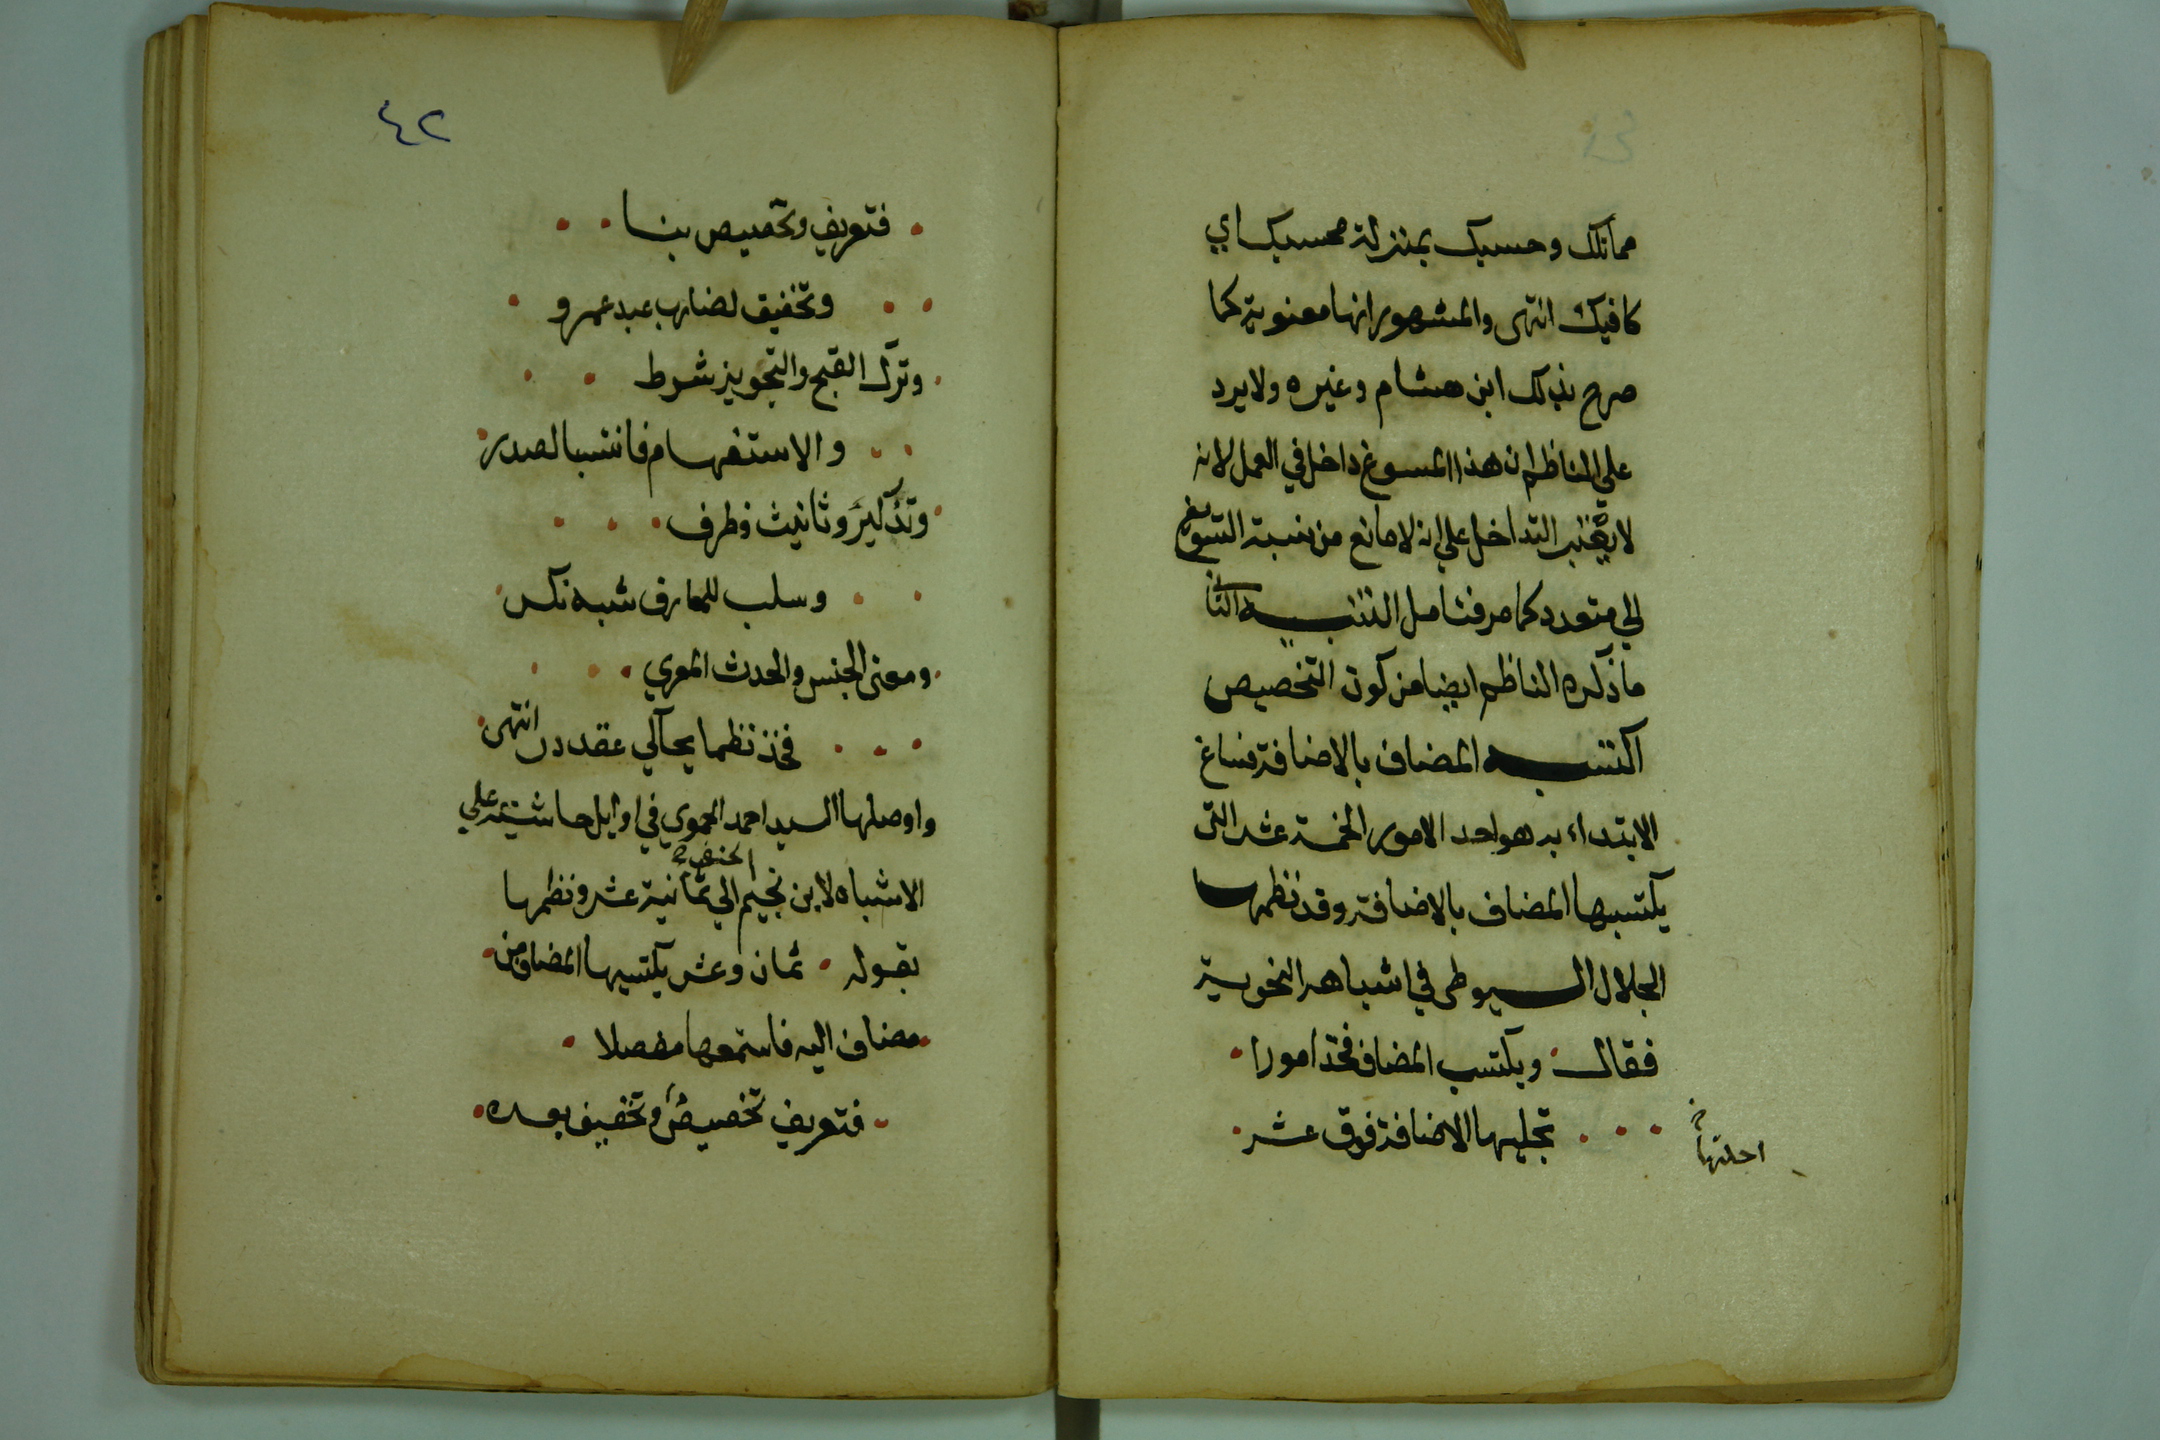 مماثلك وحسبك بمنزلة محسبك اي
كافيك انتهى والمشهور انها معنوية كما
صرح بذلك ابن هشام وغيره ولا يرد
علي الناظم ان هذا المسوغ داخل في العمل لانه
لا يجتنب التداخل علي انه لا مانع من نسبة التسويغ
الي متعدد كما مر فتامل التنبيه الثاني
ما ذكره الناظم ايضا من كون التخصيص
اكتسبه المضاف بالاضافة فساغ
الابتداء به هو احد الامور الخمسة عشر التي
يكتسبها المضاف بالاضافة وقد نظمها
الجلال السيوطي في اشباهه النحوية
فقال ويكتسب المضاف فخذ امورا
تجليها الاضافة فوق عشر
احلتها
٤٢
فتعريف وتخصيص بنا
وتخفيف لضارب عبد عمرو
وترك القبح والتجويز شرط
والاستفهام فانتسبا لصدر
وتذكير وتانيث وظرف
وسلب للمعارف شبه نكر
ومعنى الجنس والحدث المعري
فخذ نظما يحاكي عقد در انتهى
واوصلها السيد احمد الحموي في اوايل حاشيته علي
الاشباه لابن نجيم الحنفي الي ثمانية عشر ونظمها
بقوله ثمان وعشر يكتسبها المضاف من
مضاف اليه فاستمعها مفصلا
فتعريف تخصيص وتخفيف بعده